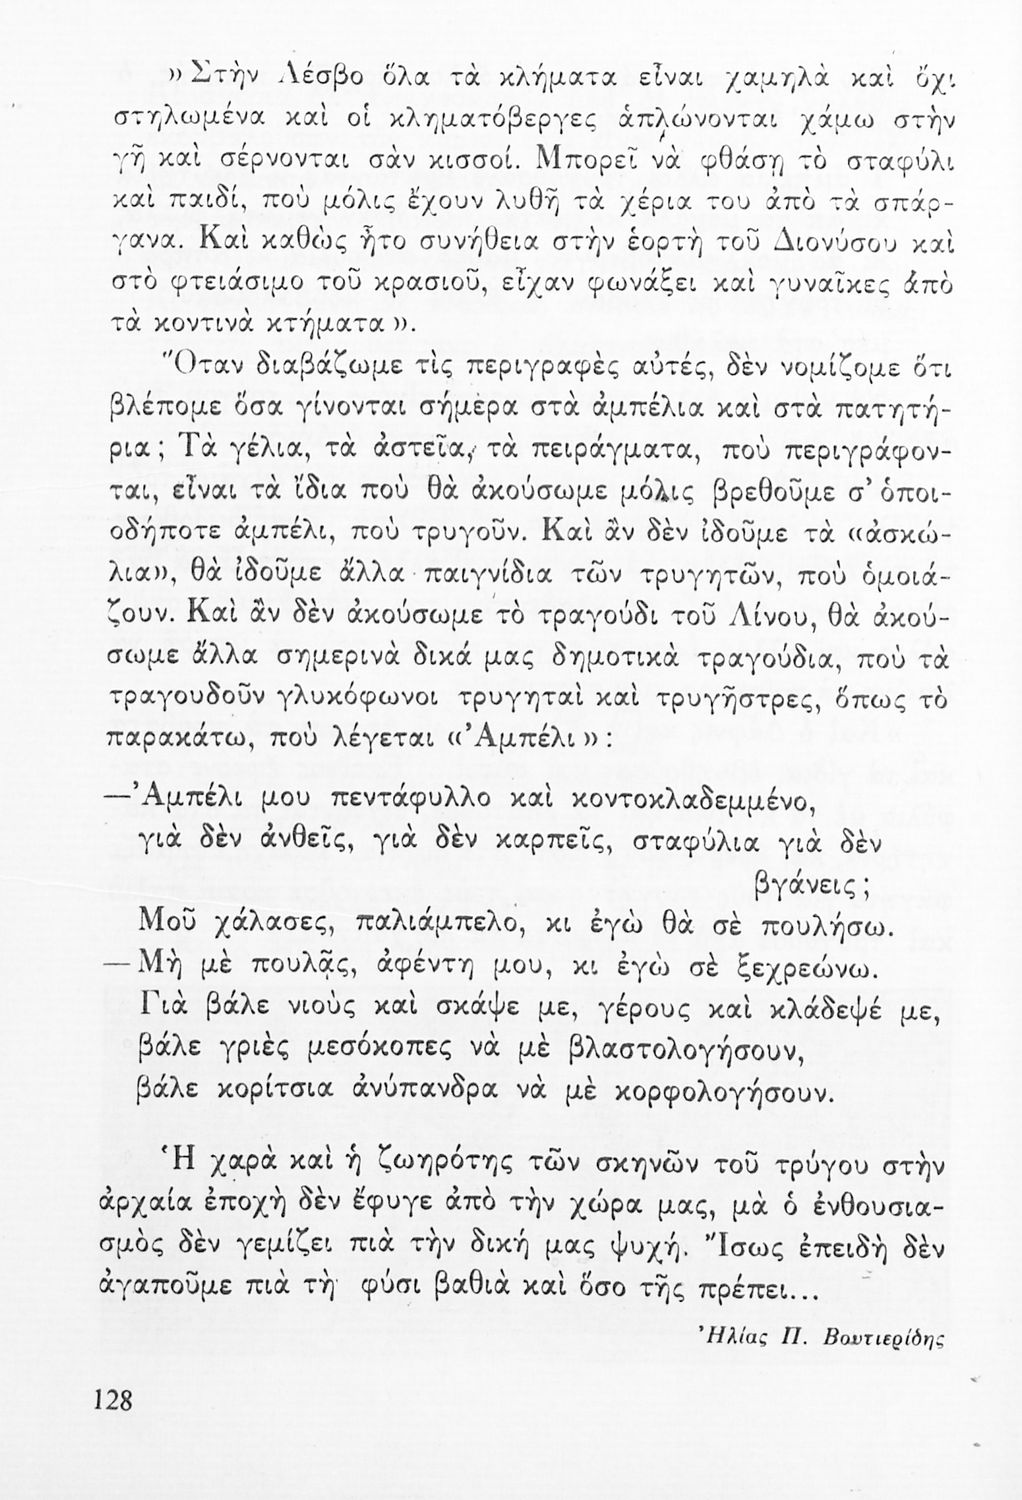 » Στὴν Λέσβο ὅλα τὰ κλήματα εἶναι χαμηλὰ καὶ ὄχι
στηλωμένα καὶ οἱ κληματόβεργες ἁπλώνονται χάμω στὴν
γῆ καὶ σέρνονται σὰν κισσοί. Μπορεῖ νὰ φθάσῃ τὸ σταφύλι
καὶ παιδί, ποὺ μόλις ἔχουν λυθῆ τὰ χέρια του ἀπὸ τὰ σπάρ-
γανα. Καὶ καθὼς ἦτο συνήθεια στὴν ἑορτὴ τοῦ Διονύσου καὶ
στὸ φτειάσιμο τοῦ κρασιοῦ, εἶχαν φωνάξει καὶ γυναῖκες ἀπὸ
τὰ κοντινὰ κτήματα ».
Ὅταν διαβάζωμε τὶς περιγραφὲς αὐτές, δὲν νομίζομε ὅτι
βλέπομε ὅσα γίνονται σήμερα στὰ ἀμπέλια καὶ στὰ πατητή-
ρια ; Τὰ γέλια, τὰ ἀστεῖα, τὰ πειράγματα, ποὺ περιγράφον-
ται, εἶναι τὰ ἴδια ποὺ θὰ ἀκούσωμε μόλις βρεθοῦμε σ’ ὁποι-
οδήποτε ἀμπέλι, ποὺ τρυγοῦν. Καὶ ἂν δὲν ἰδοῦμε τὰ «ἀσκώ-
λια», θὰ ἰδοῦμε ἄλλα παιγνίδια τῶν τρυγητῶν, ποὺ ὁμοιά-
ζουν. Καὶ ἂν δὲν ἀκούσωμε τὸ τραγούδι τοῦ Λίνου, θὰ ἀκού-
σωμε ἄλλα σημερινὰ δικά μας δημοτικὰ τραγούδια, ποὺ τὰ
τραγουδοῦν γλυκόφωνοι τρυγηταὶ καὶ τρυγῆστρες, ὅπως τὸ
παρακάτω, ποὺ λέγεται «Ἀμπέλι » :
—Ἀμπέλι μου πεντάφυλλο καὶ κοντοκλαδεμμένο,
γιὰ δὲν ἀνθεῖς, γιὰ δὲν καρπεῖς, σταφύλια γιὰ δὲν
βγάνεις ;
Μοῦ χάλασες, παλιάμπελο, κι ἐγὼ θὰ σὲ πουλήσω.
— Μὴ μὲ πουλᾷς, ἀφέντη μου, κι ἐγὼ σὲ ξεχρεώνω.
Γιὰ βάλε νιοὺς καὶ σκάψε με, γέρους καὶ κλάδεψέ με,
βάλε γριὲς μεσόκοπες νὰ μὲ βλαστολογήσουν,
βάλε κορίτσια ἀνύπανδρα νὰ μὲ κορφολογήσουν.
Ἡ χαρὰ καὶ ἡ ζωηρότης τῶν σκηνῶν τοῦ τρύγου στὴν
ἀρχαία ἐποχὴ δὲν ἔφυγε ἀπὸ τὴν χώρα μας, μὰ ὁ ἐνθουσια-
σμὸς δὲν γεμίζει πιὰ τὴν δική μας ψυχή. Ἴσως ἐπειδὴ δὲν
ἀγαποῦμε πιὰ τὴ φύσι βαθιὰ καὶ ὅσο τῆς πρέπει...
Ἠλίας Π. Βουτιερίδης
128